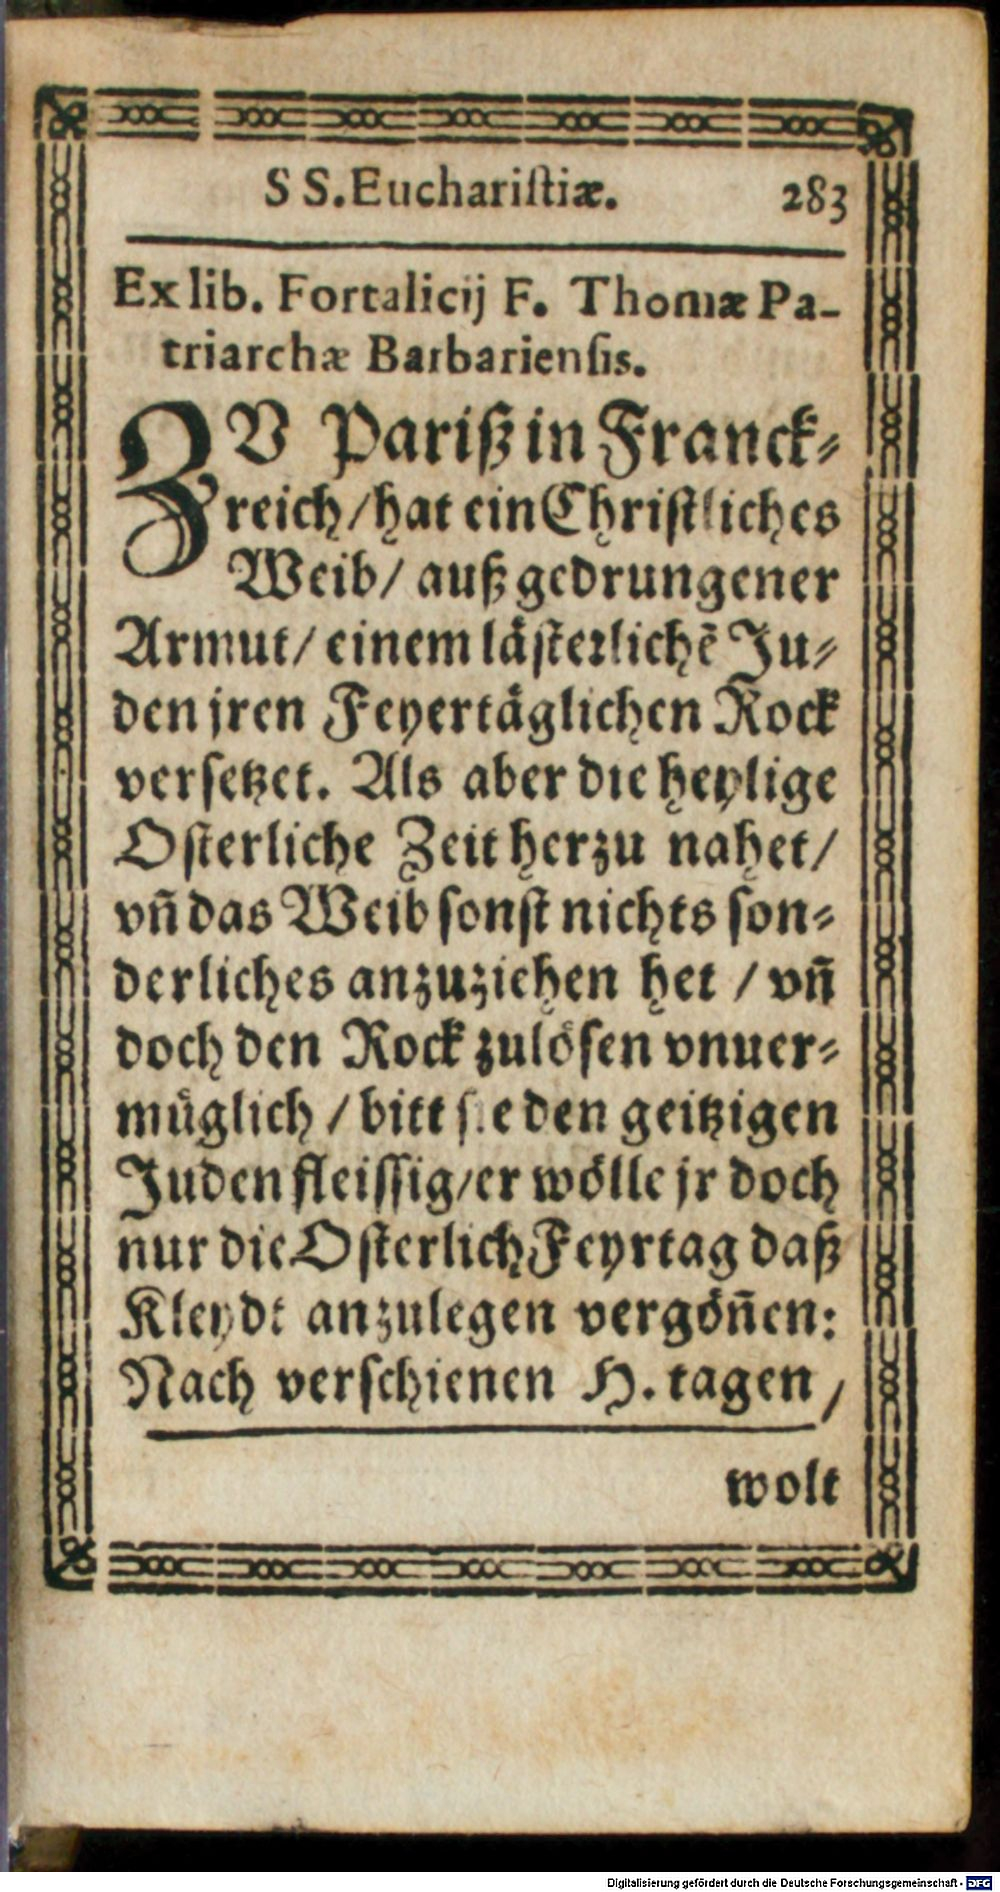 SS. Euchariſtiæ. 283
Ex lib. Fortalicij F. Thomæ Pa-
triarchæ Barbarienſis.
ZV Pariß in Franck⸗
reich / hat ein Chriſtliches
Weib / auß gedrungener
Armut / einem läſterlichẽ Ju⸗
den jren Feyertäglichen Rock
verſetzet. Als aber die heylige
Oſterliche Zeit herzu nahet /
vñ das Weib ſonſt nichts ſon⸗
derliches anzuziehen het / vñ
doch den Rock zulöſen vnuer⸗
müglich / bitt ſie den geitzigen
Juden fleiſſig / er wölle jr doch
nur die Oſterlich Feyrtag daß
Kleydt anzulegen vergöñen:
Nach verſchienen H. tagen /
wolt
Digitalisierung gefördert durch die Deutsche Forschungsgemeinschaft - DFG